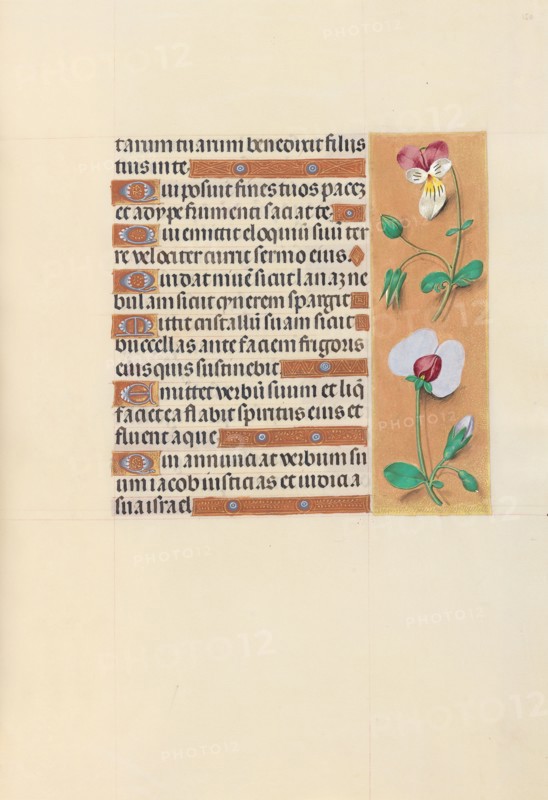 tarum tuarum benedixit filiis
tuis in te
Qui posuit fines tuos pacez
et adype frumenti saciat te
Qui emittit eloquiū suū ter
re velociter currit sermo eius.
Qui dat niuē sicut lanaz ne
bulam sicut cynerem spargit
Mittit cristallū suam sicut
buccellas ante faciem frigoris
eius quis sustinebit
Emittet verbū suum et liq̄
faciet ea flabit spiritus eius et
fluent aque
Qui annunciat verbum su
um iacob iusticias et iudicia
sua israel
PHOTO12